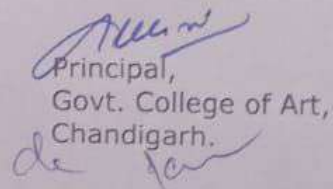 Principal,
Govt. College of Art,
Chandigarh.